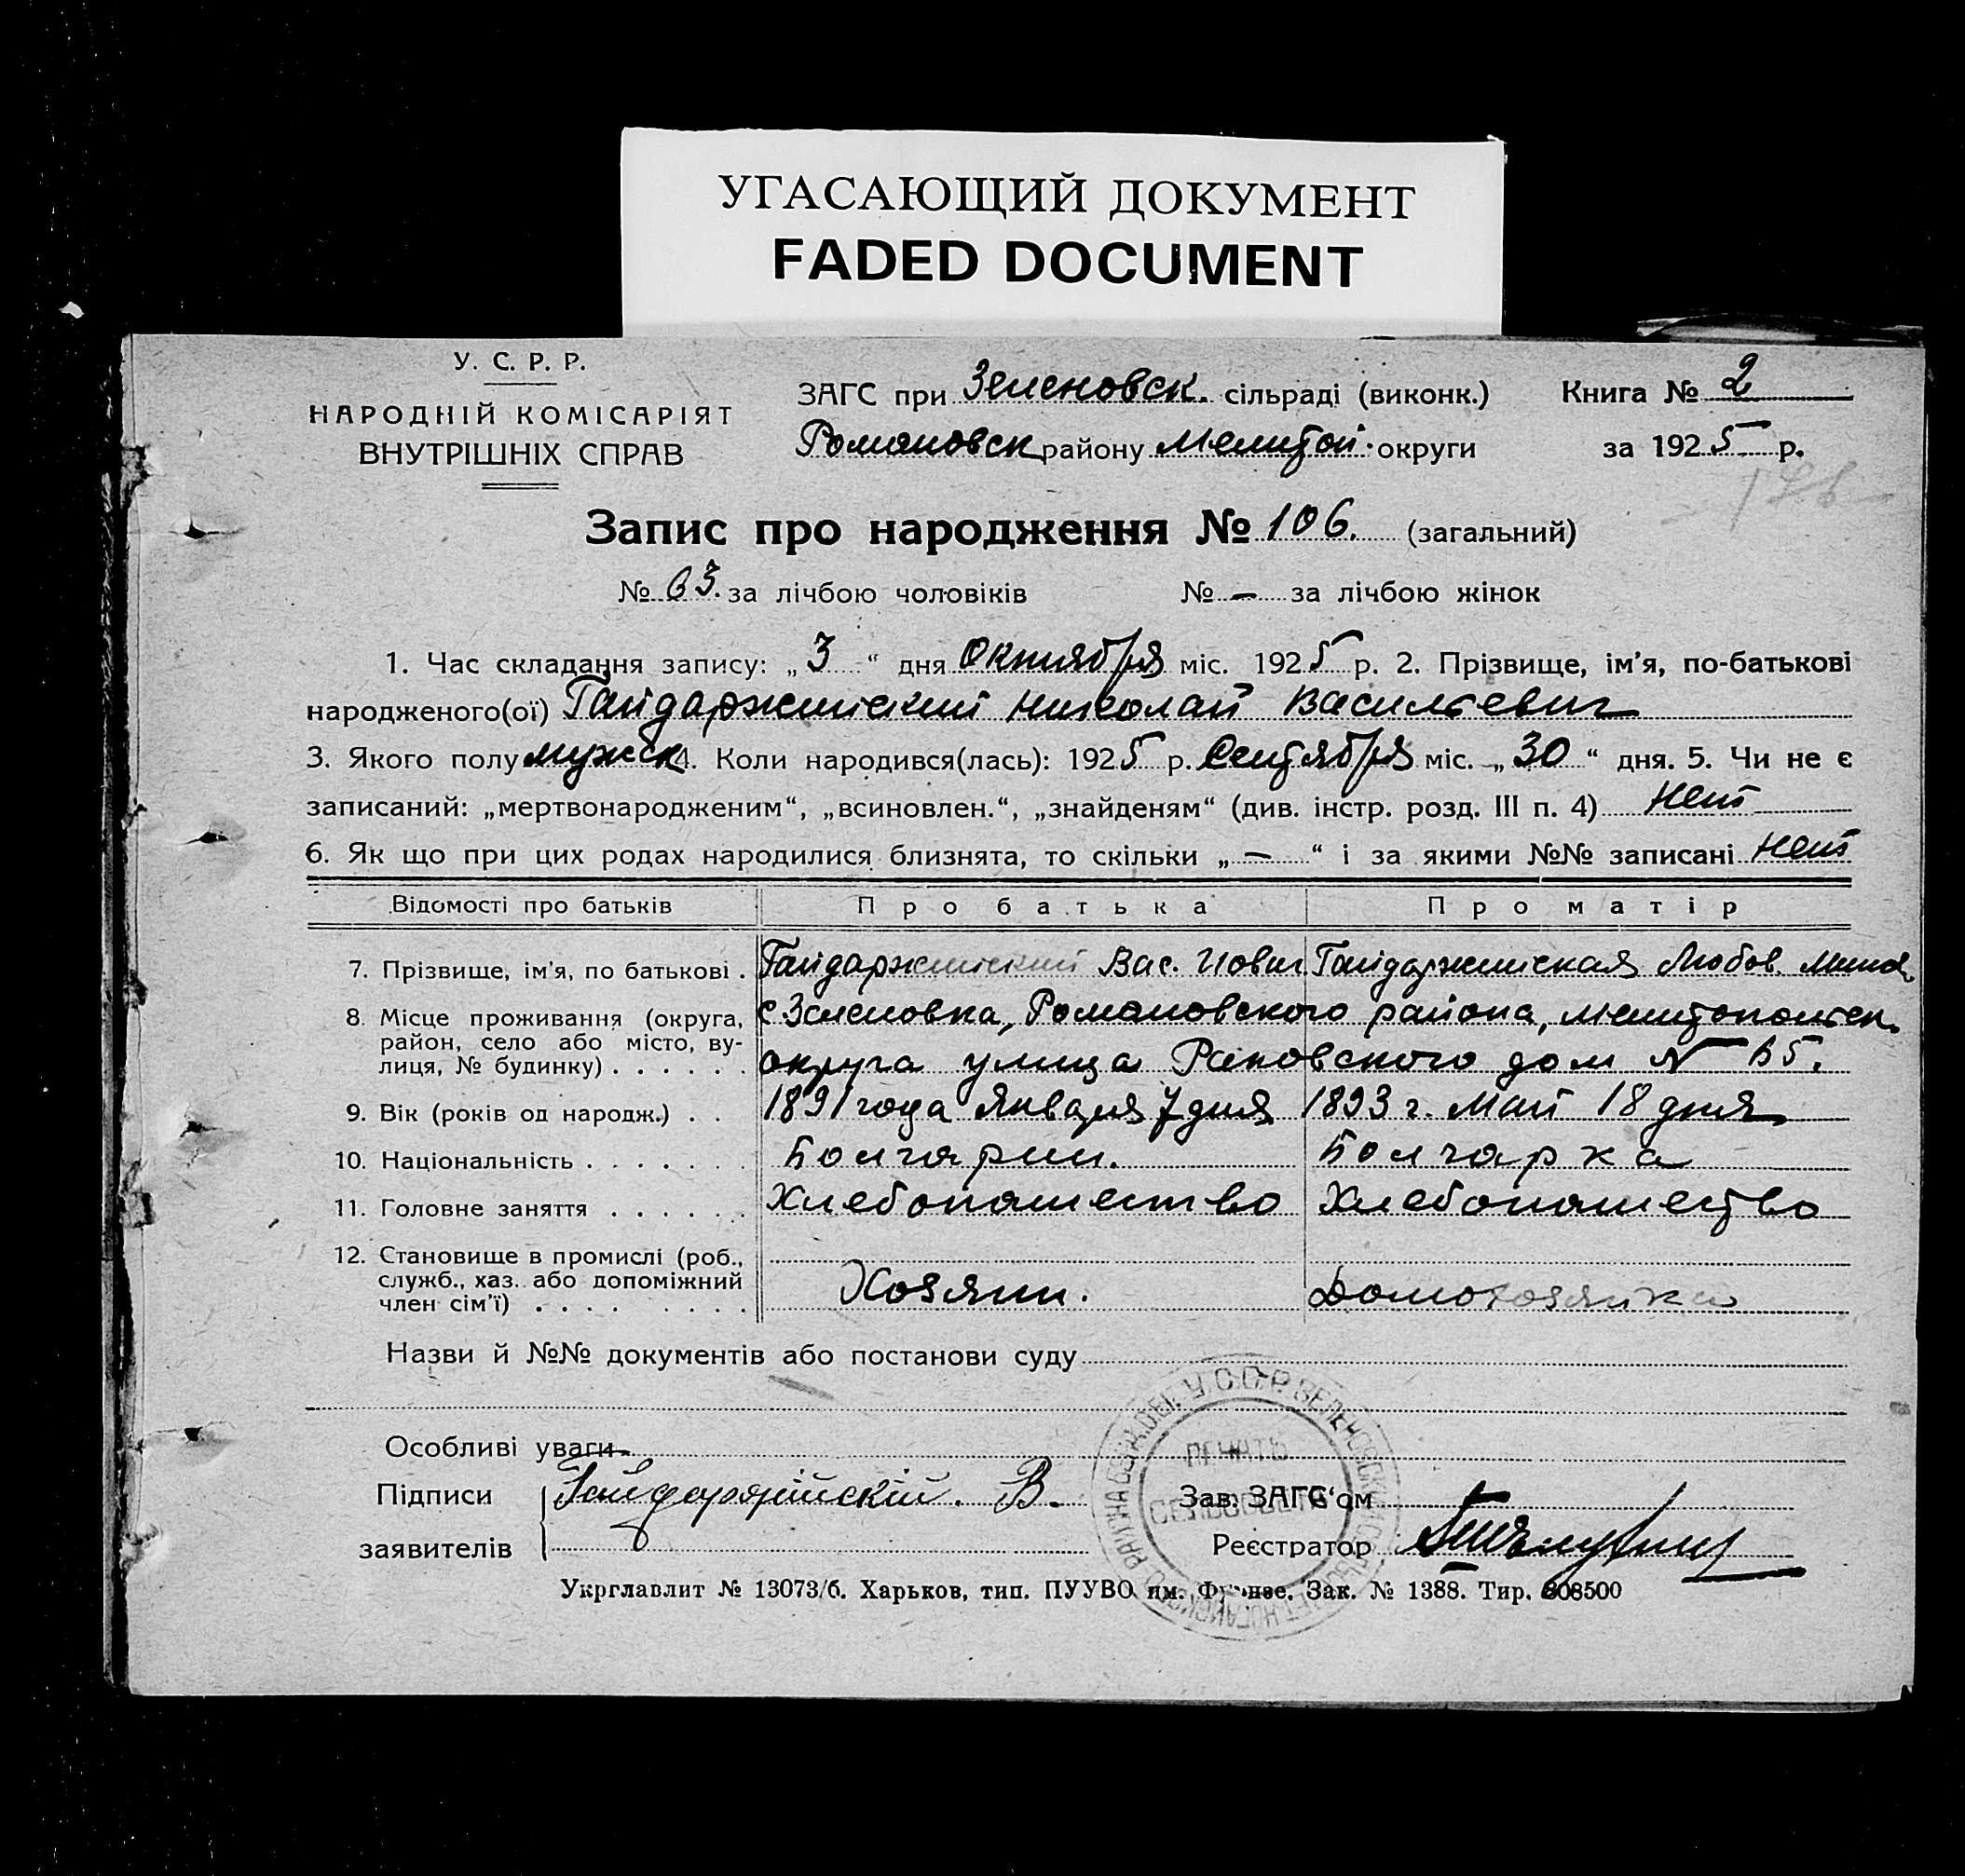 УГАСАЮЩИЙ ДОКУМЕНТ
FADED DOCUMENT
У. С. Р. Р.
НАРОДНІЙ КОМІСАРІЯТ
ВНУТРІШНІХ СПРАВ
ЗАГС при Зеленовск. сільраді (виконк.)
Романовск району Мелитоп. округи
Книга № 2
за 1925 р.
Запис про народження № 106. (загальний)
№ 63. за лічбою чоловіків № — за лічбою жінок
1. Час складання запису: „ 3 “ дня октября міс. 1925 р. 2. Прізвище, ім'я, по-батькові
народженого(ої) Гайдаржийский Николай Васильевич
3. Якого полу мужск 4. Коли народився(лась): 1925 р. Сентября міс. „ 30 “ дня. 5. Чи не є
записаний: „мертвонародженим“, „всиновлен.“, „знайденям“ (див. інстр. розд. III п. 4) нет
6. Як що при цих родах народилися близнята, то скільки „ — “ і за якими №№ записані нет
Відомості про батьків Про батька Про матір
7. Прізвище, ім'я, по батькові . Гайдаржийский Вас. Иович Гайдаржийская Любов
8. Місце проживання (округа, с Зеленовка, Романовского района, Мелитопольск.
район, село або місто, ву-
лиця, № будинку) . . . . . . округа улица Раковского дом № 65.
9. Вік (років од народж.) . . 1891 года Января 7 дня 1893 г. Май 18 дня
10. Національність . . . . . . . Болгарин. Болгарка
11. Головне заняття . . . . . . Хлебопашество Хлебопашество
12. Становище в промислі (роб.,
служб., хаз. або допоміжний
член сім'ї) . . . . . . . . Хозяин. Домохозяйка
Назви й №№ документів або постанови суду
Особливі уваги
Підписи Гайдаржійскій. В. Зав. ЗАГС'ом
заявителів Реєстратор
ПЕЧАТЬ
СЕЛЬСОВЕТА
Укрглавлит № 13073/б. Харьков, тип. ПУУВО им. Фрунзе. Зак. № 1388. Тир. 808500